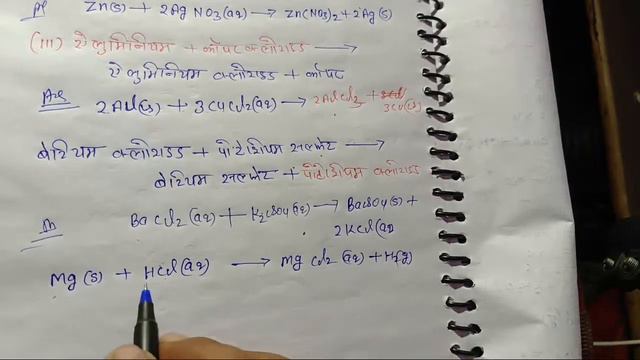 Zn(s) + 2AgNO3(aq) → Zn(NO3)2 + 2Ag(s)
(III) ऐलुमिनियम + कॉपर क्लोराइड →
ऐलुमिनियम क्लोराइड + कॉपर
Ans 2Al(s) + 3CuCl2(aq) → 2AlCl3 + 3Cu(s)
बेरियम क्लोराइड + पोटैशियम सल्फेट →
बेरियम सल्फेट + पोटैशियम क्लोराइड
BaCl2(aq) + K2SO4(aq) → BaSO4(s) +
2KCl(aq)
Mg(s) + HCl(aq) → MgCl2(aq) + H2(g)